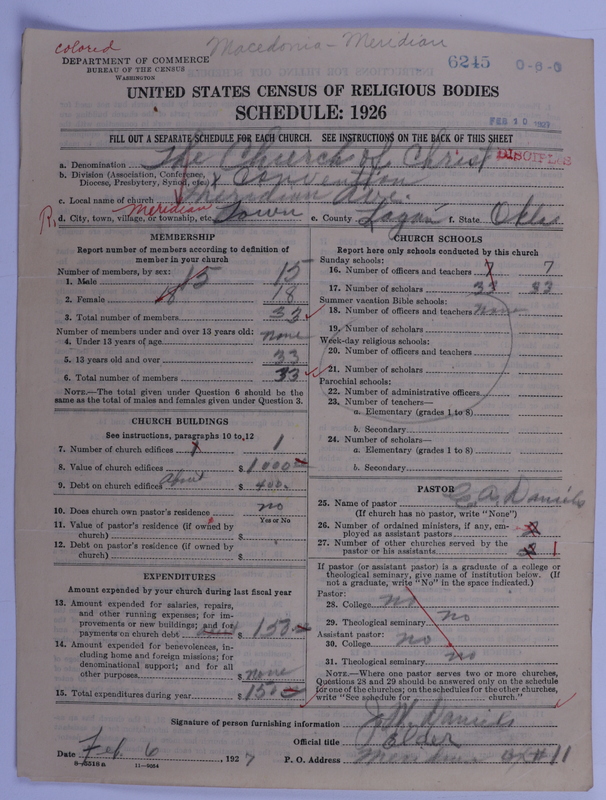 colored
Macedonia - Meridian
DEPARTMENT OF COMMERCE
BUREAU OF THE CENSUS
WASHINGTON
6245 0-6-0
UNITED STATES CENSUS OF RELIGIOUS BODIES
SCHEDULE: 1926
FEB 10 1927
FILL OUT A SEPARATE SCHEDULE FOR EACH CHURCH. SEE INSTRUCTIONS ON THE BACK OF THIS SHEET
a. Denomination The Church of Christ DISCIPLES
b. Division (Association, Conference, Diocese, Presbytery, Synod, etc.) Convention
c. Local name of church
d. City, town, village, or township, etc. Meridian Town e. County Logan f. State Okla
MEMBERSHIP
Report number of members according to definition of member in your church
Number of members, by sex:
1. Male 15 15
2. Female 18 18
3. Total number of members 33
Number of members under and over 13 years old:
4. Under 13 years of age none
5. 13 years old and over 33
6. Total number of members 33
NOTE.—The total given under Question 6 should be the same as the total of males and females given under Question 3.
CHURCH BUILDINGS
See instructions, paragraphs 10 to 12
7. Number of church edifices 1
8. Value of church edifices $ 1000
9. Debt on church edifices About $ 400
10. Does church own pastor's residence no
Yes or No
11. Value of pastor's residence (if owned by church) $
12. Debt on pastor's residence (if owned by church) $
EXPENDITURES
Amount expended by your church during last fiscal year
13. Amount expended for salaries, repairs, and other running expenses; for improvements or new buildings; and for payments on church debt $ 150
14. Amount expended for benevolences, including home and foreign missions; for denominational support; and for all other purposes $ none
15. Total expenditures during year $ 150
CHURCH SCHOOLS
Report here only schools conducted by this church
Sunday schools:
16. Number of officers and teachers 7 7
17. Number of scholars 33 33
Summer vacation Bible schools:
18. Number of officers and teachers none
19. Number of scholars
Week-day religious schools:
20. Number of officers and teachers
21. Number of scholars
Parochial schools:
22. Number of administrative officers
23. Number of teachers—
a. Elementary (grades 1 to 8)
b. Secondary
24. Number of scholars—
a. Elementary (grades 1 to 8)
b. Secondary
PASTOR
25. Name of pastor E. A. Daniels
(If church has no pastor, write "None")
26. Number of ordained ministers, if any, employed as assistant pastors
27. Number of other churches served by the pastor or his assistants 1
If pastor (or assistant pastor) is a graduate of a college or theological seminary, give name of institution below. (If not a graduate, write "No" in the space indicated.)
Pastor:
28. College no
29. Theological seminary no
Assistant pastor:
30. College no
31. Theological seminary no
NOTE.—Where one pastor serves two or more churches, Questions 28 and 29 should be answered only on the schedule for one of the churches; on the schedules for the other churches, write "See schedule for church."
Signature of person furnishing information J. W. Daniels
Official title Elder
Date Feb 6, 1927 P. O. Address Meridian
8-5518a 11-9004